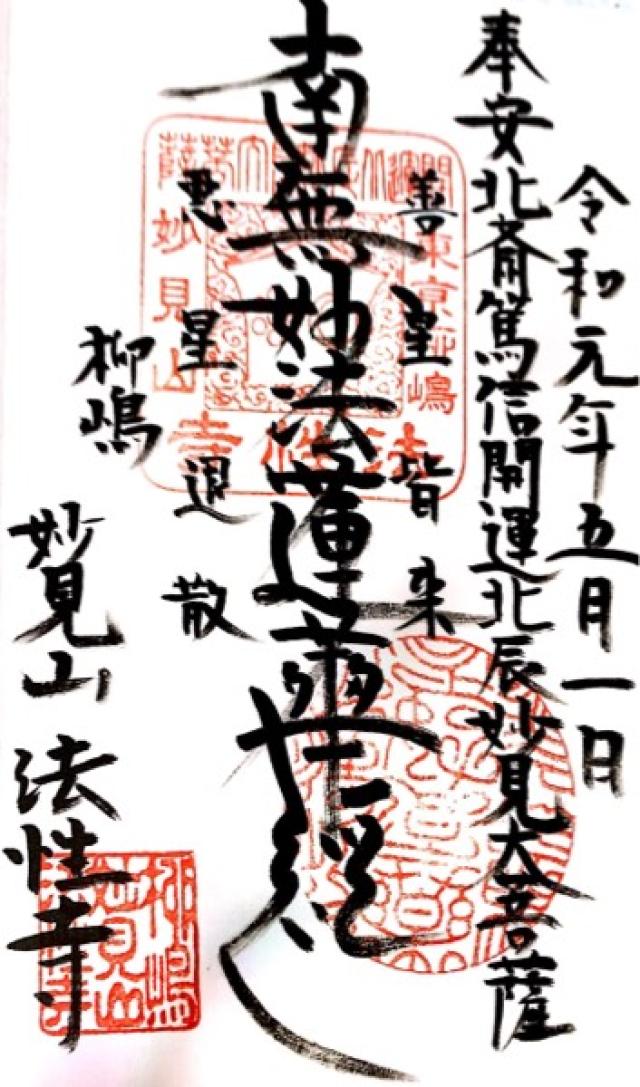 令和元年五月一日
奉安北斎篤信開運北辰妙見大菩薩
善星皆来
南無妙法蓮華経
悪星退散
柳嶋
妙見山法性寺
東京柳嶋
妙見山
法性寺
柳嶋
妙見山
法性寺